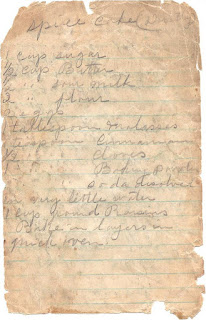 Spice Cake
1 Cup sugar
½ Cup Butter
" " sour milk
2 " flour
Tablespoon molasses
teaspoon Cinnamon
½ " Cloves
" Baking powder
" soda dissolved
in very little water
1 Cup ground Raisins
Bake in layers in
quick oven